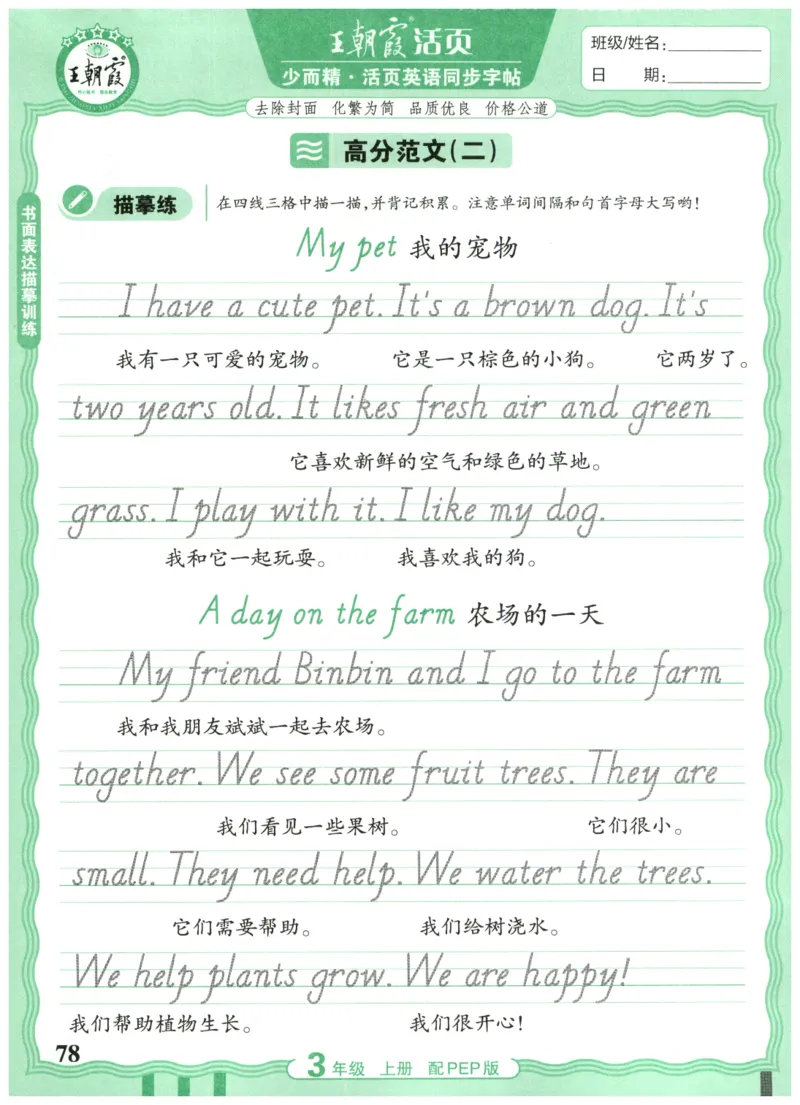 王朝霞
王朝霞活页
少而精·活页英语同步字帖
去除封面 化繁为简 品质优良 价格公道
班级/姓名:
日 期:
高分范文(二)
书面表达描摹训练
描摹练
在四线三格中描一描,并背记积累。注意单词间隔和句首字母大写哟!
My pet 我的宠物
I have a cute pet. It's a brown dog. It's
我有一只可爱的宠物。 它是一只棕色的小狗。 它两岁了。
two years old. It likes fresh air and green
它喜欢新鲜的空气和绿色的草地。
grass. I play with it. I like my dog.
我和它一起玩耍。 我喜欢我的狗。
A day on the farm 农场的一天
My friend Binbin and I go to the farm
我和我朋友斌斌一起去农场。
together. We see some fruit trees. They are
我们看见一些果树。 它们很小。
small. They need help. We water the trees.
它们需要帮助。 我们给树浇水。
We help plants grow. We are happy!
我们帮助植物生长。 我们很开心!
78
3年级 上册 配PEP版